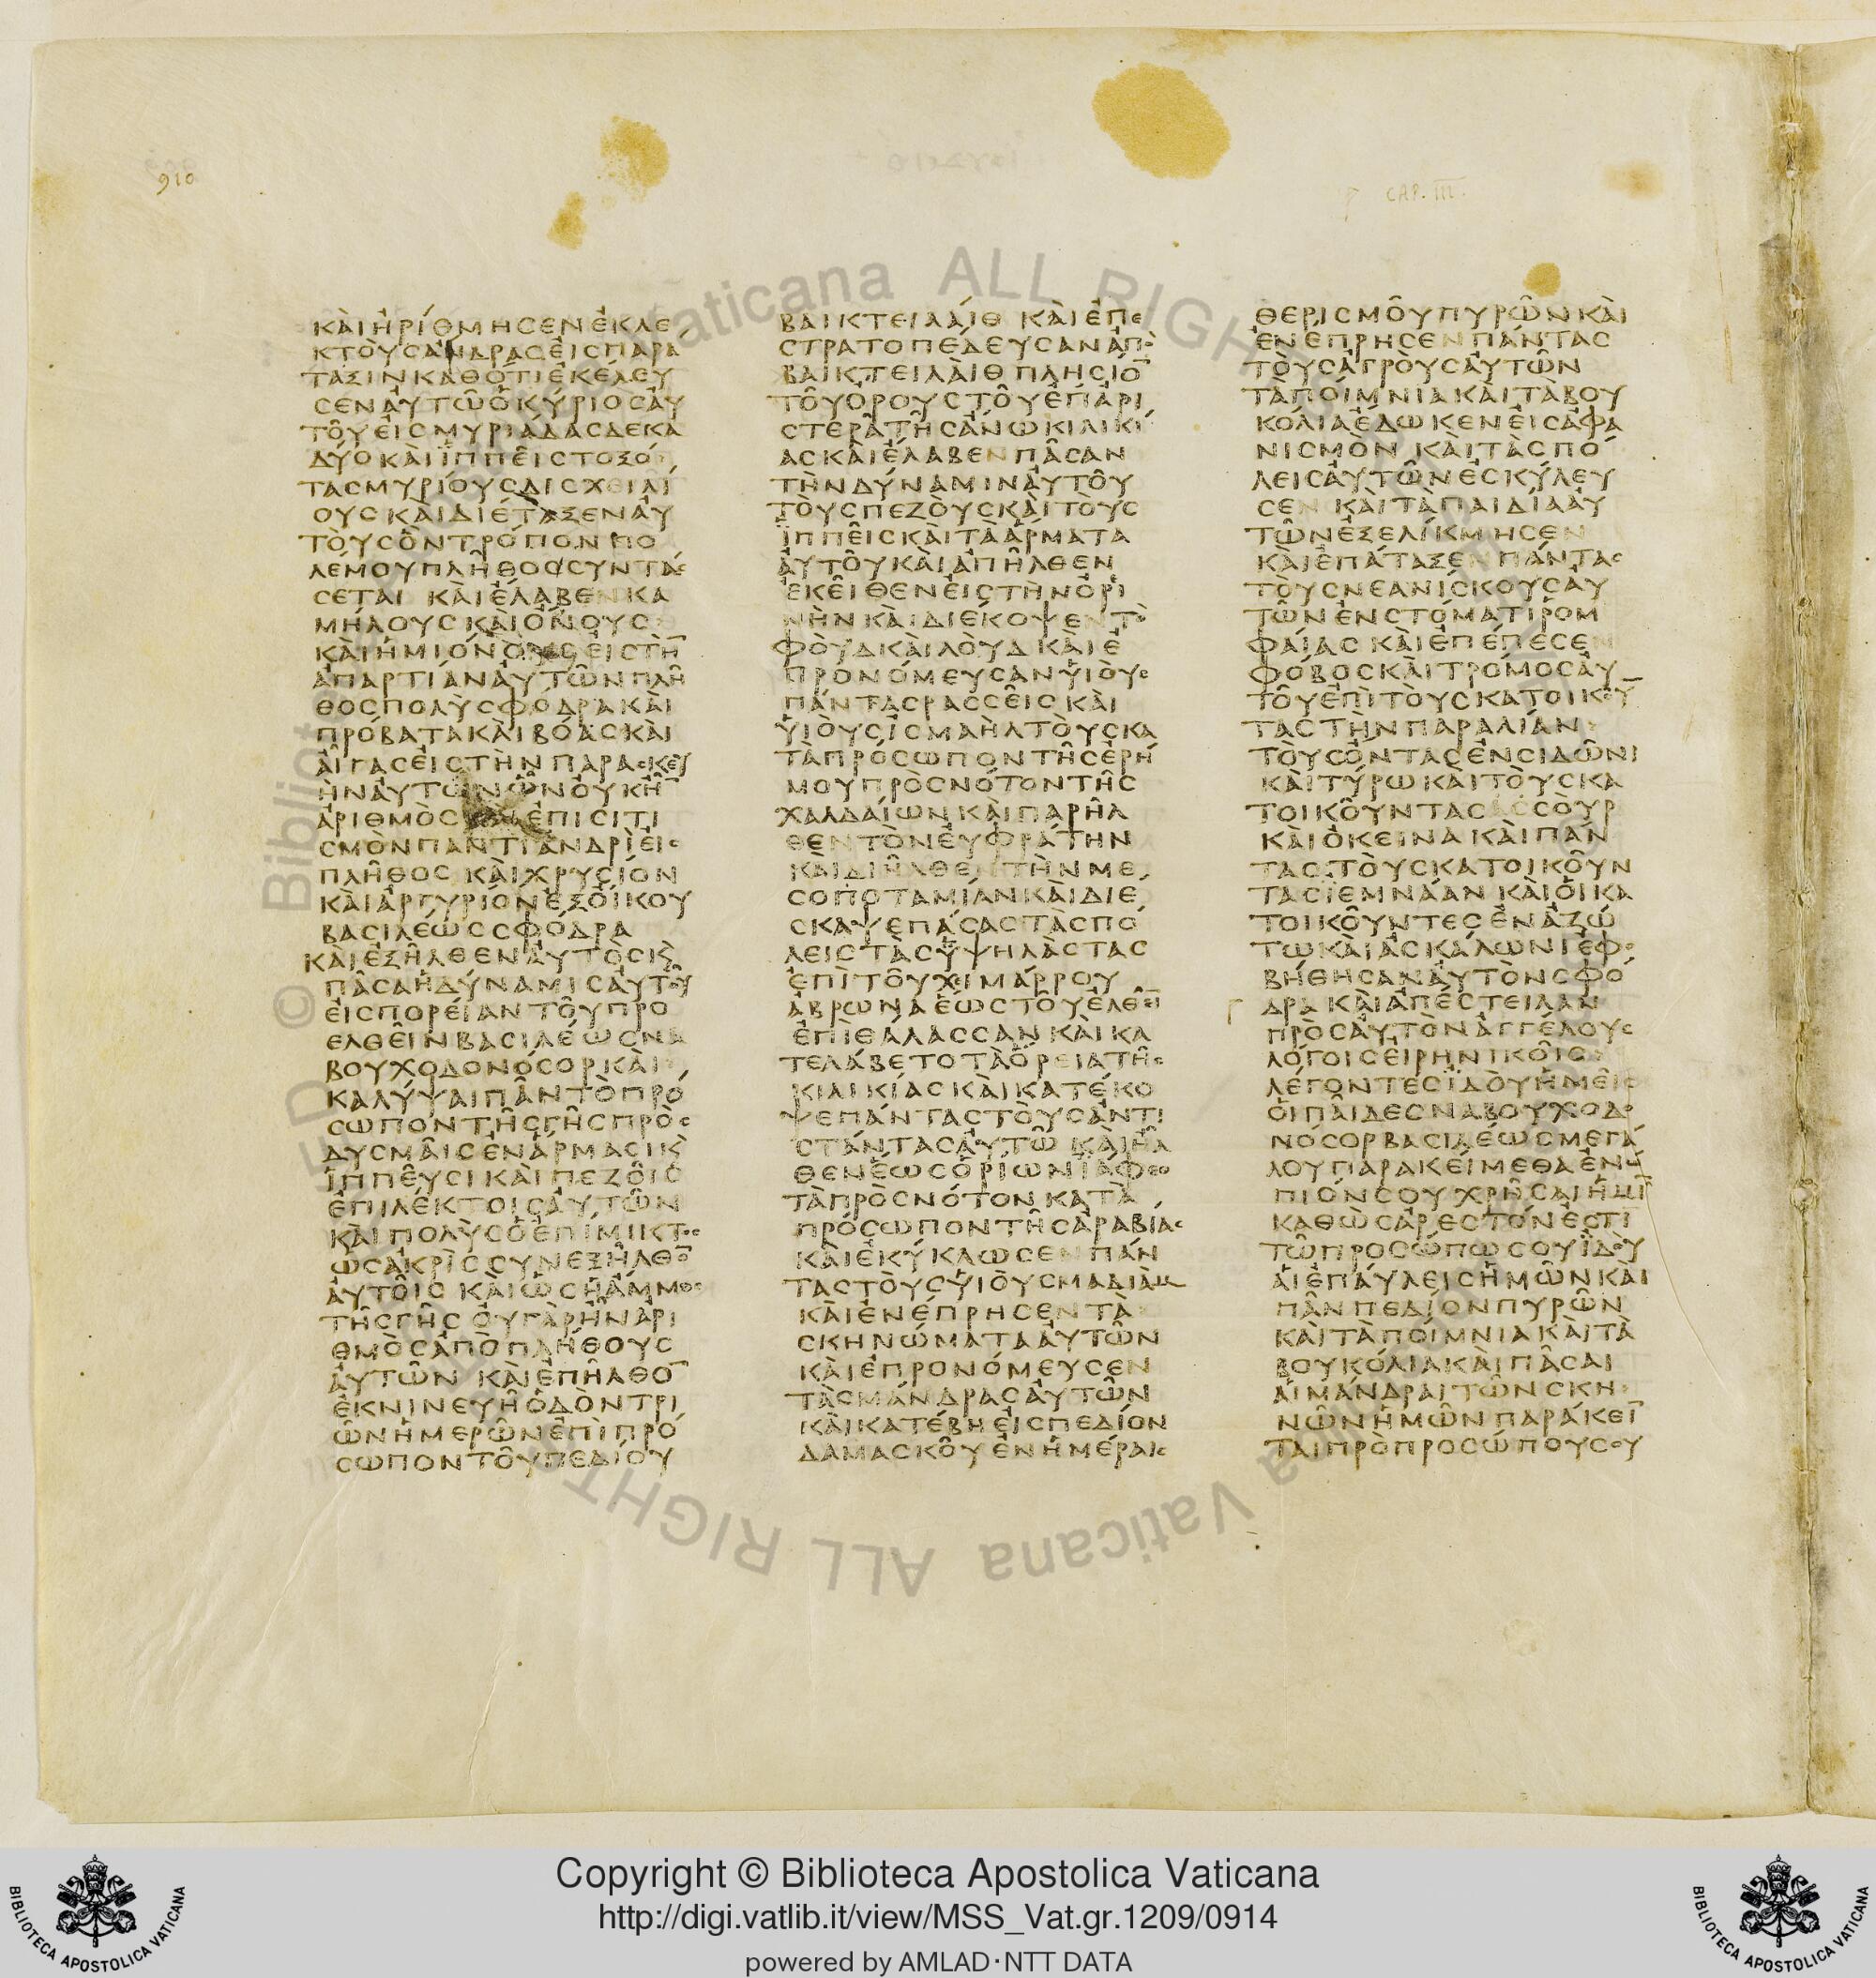 910
CAP. III.
ΚΑΙΗΡΙΘΜΗΣΕΝΕΚΛΕ
ΚΤΟΥΣΑΝΔΡΑΣΕΙΣΠΑΡΑ
ΤΑΞΙΝΚΑΘΟΤΙΕΚΕΛΕΥ
ΣΕΝΑΥΤΩΟΚΥΡΙΟΣΑΥ
ΤΟΥΕΙΣΜΥΡΙΑΔΑΣΔΕΚΑ
ΔΥΟΚΑΙΪΠΠΕΙΣΤΟΞΟ
ΤΑΣΜΥΡΙΟΥΣΔΙΣΧΕΙΛΙ
ΟΥΣΚΑΙΔΙΕΤΑΞΕΝΑΥ
ΤΟΥΣΟΝΤΡΟΠΟΝΠΟ
ΛΕΜΟΥΠΛΗΘΟΣΣΥΝΤΑΣ
ΣΕΤΑΙ ΚΑΙΕΛΑΒΕΝΚΑ
ΜΗΛΟΥΣΚΑΙΟΝΟΥΣ
ΚΑΙΗΜΙΟΝΟΥΣΕΙΣΤΗ̅
ΑΠΑΡΤΙΑΝΑΥΤΩΝΠΛΗ
ΘΟΣΠΟΛΥΣΦΟΔΡΑΚΑΙ
ΠΡΟΒΑΤΑΚΑΙΒΟΑΣΚΑΙ
ΑΙΓΑΣΕΙΣΤΗΝΠΑΡΑΣΚΕΥ
ΗΝΑΥΤΩΝΩΝΟΥΚΗ̅
ΑΡΙΘΜΟΣΚΑΙΕΠΙΣΙΤΙ
ΣΜΟΝΠΑΝΤΙΑΝΔΡΙΕΙΣ
ΠΛΗΘΟΣ ΚΑΙΧΡΥΣΙΟΝ
ΚΑΙΑΡΓΥΡΙΟΝΕΞΟΙΚΟΥ
ΒΑΣΙΛΕΩΣΣΦΟΔΡΑ
ΚΑΙΕΞΗΛΘΕΝΑΥΤΟΣΚ
ΠΑΣΑΗΔΥΝΑΜΙΣΑΥΤΟΥ
ΕΙΣΠΟΡΕΙΑΝΤΟΥΠΡΟ
ΕΛΘΕΙΝΒΑΣΙΛΕΩΣΝΑ
ΒΟΥΧΟΔΟΝΟΣΟΡΚΑΙ
ΚΑΛΥΨΑΙΠΑΝΤΟΠΡΟ
ΣΩΠΟΝΤΗΣΓΗΣΠΡΟΣ
ΔΥΣΜΑΙΣΕΝΑΡΜΑΣΙΚ
ΪΠΠΕΥΣΙΚΑΙΠΕΖΟΙΣ
ΕΠΙΛΕΚΤΟΙΣΑΥΤΩΝ
ΚΑΙΠΟΛΥΣΟΕΠΙΜΙΚΤΟΣ
ΩΣΑΚΡΙΣΣΥΝΕΞΗΛΘΟ̅
ΑΥΤΟΙΣ ΚΑΙΩΣΗΑΜΜΟΣ
ΤΗΣΓΗΣ ΟΥΓΑΡΗΝΑΡΙ
ΘΜΟΣΑΠΟΠΛΗΘΟΥΣ
ΑΥΤΩΝ ΚΑΙΕΠΗΛΘΟ̅
ΕΚΝΙΝΕΥΗΟΔΟΝΤΡΙ
ΩΝΗΜΕΡΩΝΕΠΙΠΡΟ
ΣΩΠΟΝΤΟΥΠΕΔΙΟΥ
ΒΑΙΚΤΕΙΛΑΙΘ ΚΑΙΕΠΕ
ΣΤΡΑΤΟΠΕΔΕΥΣΑΝΑΠΟ
ΒΑΙΚΤΕΙΛΑΙΘΠΛΗΣΙΟ̅
ΤΟΥΟΡΟΥΣΤΟΥΕΠΑΡΙ
ΣΤΕΡΑΤΗΣΑΝΩΚΙΛΙΚΙ
ΑΣΚΑΙΕΛΑΒΕΝΠΑΣΑΝ
ΤΗΝΔΥΝΑΜΙΝΑΥΤΟΥ
ΤΟΥΣΠΕΖΟΥΣΚΑΙΤΟΥΣ
ΪΠΠΕΙΣΚΑΙΤΑΑΡΜΑΤΑ
ΑΥΤΟΥΚΑΙΑΠΗΛΘΕΝ
ΕΚΕΙΘΕΝΕΙΣΤΗΝΟΡΙ
ΝΗΝΚΑΙΔΙΕΚΟΨΕΝΤΟ
ΦΟΥΔΚΑΙΛΟΥΔΚΑΙΕ
ΠΡΟΝΟΜΕΥΣΑΝΥΙΟΥΣ
ΠΑΝΤΑΣΡΑΣΣΕΙΣ ΚΑΙ
ΥΙΟΥΣΙΣΜΑΗΛΤΟΥΣΚΑ
ΤΑΠΡΟΣΩΠΟΝΤΗΣΕΡΗ
ΜΟΥΠΡΟΣΝΟΤΟΝΤΗΣ
ΧΑΛΔΑΙΩΝΚΑΙΠΑΡΗΛ
ΘΕΝΤΟΝΕΥΦΡΑΤΗΝ
ΚΑΙΔΙΗΛΘΕΝΤΗΝΜΕ
ΣΟΠΟΤΑΜΙΑΝΚΑΙΔΙΕ
ΣΚΑΨΕΠΑΣΑΣΤΑΣΠΟ
ΛΕΙΣΤΑΣΥΨΗΛΑΣΤΑΣ
ΕΠΙΤΟΥΧΙΜΑΡΡΟΥ
ΑΒΡΩΝΑΕΩΣΤΟΥΕΛΘΕΙ̅
ΕΠΙΘΑΛΑΣΣΑΝΚΑΙΚΑ
ΤΕΛΑΒΕΤΟΤΑΟΡΕΙΑΤΗΣ
ΚΙΛΙΚΙΑΣΚΑΙΚΑΤΕΚΟ
ΨΕΠΑΝΤΑΣΤΟΥΣΑΝΤΙ
ΣΤΑΝΤΑΣΑΥΤΩ ΚΑΙΗΛ
ΘΕΝΕΩΣΟΡΙΩΝΪΑΦΕΘ
ΤΑΠΡΟΣΝΟΤΟΝΚΑΤΑ
ΠΡΟΣΩΠΟΝΤΗΣΑΡΑΒΙΑΣ
ΚΑΙΕΚΥΚΛΩΣΕΝΠΑΝ
ΤΑΣΤΟΥΣΥΙΟΥΣΜΑΔΙΑΜ
ΚΑΙΕΝΕΠΡΗΣΕΝΤΑ
ΣΚΗΝΩΜΑΤΑΑΥΤΩΝ
ΚΑΙΕΠΡΟΝΟΜΕΥΣΕΝ
ΤΑΣΜΑΝΔΡΑΣΑΥΤΩΝ
ΚΑΙΚΑΤΕΒΗΕΙΣΠΕΔΙΟΝ
ΔΑΜΑΣΚΟΥΕΝΗΜΕΡΑΙΣ
ΘΕΡΙΣΜΟΥΠΥΡΩΝΚΑΙ
ΕΝΕΠΡΗΣΕΝΠΑΝΤΑΣ
ΤΟΥΣΑΓΡΟΥΣΑΥΤΩΝ
ΤΑΠΟΙΜΝΙΑΚΑΙΤΑΒΟΥ
ΚΟΛΙΑΕΔΩΚΕΝΕΙΣΑΦΑ
ΝΙΣΜΟΝ ΚΑΙΤΑΣΠΟ
ΛΕΙΣΑΥΤΩΝΕΣΚΥΛΕΥ
ΣΕΝ ΚΑΙΤΑΠΑΙΔΙΑΑΥ
ΤΩΝΕΞΕΛΙΚΜΗΣΕΝ
ΚΑΙΕΠΑΤΑΞΕΝΠΑΝΤΑΣ
ΤΟΥΣΝΕΑΝΙΣΚΟΥΣΑΥ
ΤΩΝΕΝΣΤΟΜΑΤΙΡΟΜ
ΦΑΙΑΣ ΚΑΙΕΠΕΠΕΣΕΝ
ΦΟΒΟΣΚΑΙΤΡΟΜΟΣΑΥ
ΤΟΥΕΠΙΤΟΥΣΚΑΤΟΙΚΟΥ̅
ΤΑΣΤΗΝΠΑΡΑΛΙΑΝ
ΤΟΥΣΟΝΤΑΣΕΝΣΙΔΩΝΙ
ΚΑΙΤΥΡΩΚΑΙΤΟΥΣΚΑ
ΤΟΙΚΟΥΝΤΑΣ ΣΟΥΡ
ΚΑΙΟΚΕΙΝΑΚΑΙΠΑΝ
ΤΑΣΤΟΥΣΚΑΤΟΙΚΟΥΝ
ΤΑΣΪΕΜΝΑΑΝ ΚΑΙΟΙΚΑ
ΤΟΙΚΟΥΝΤΕΣΕΝΑΖΩ
ΤΩΚΑΙΑΣΚΑΛΩΝΙΕΦΟ
ΒΗΘΗΣΑΝΑΥΤΟΝΣΦΟ
ΔΡΑ ΚΑΙΑΠΕΣΤΕΙΛΑΝ
ΠΡΟΣΑΥΤΟΝΑΓΓΕΛΟΥΣ
ΛΟΓΟΙΣΕΙΡΗΝΙΚΟΙΣ
ΛΕΓΟΝΤΕΣΪΔΟΥΗΜΕΙΣ
ΟΙΠΑΙΔΕΣΝΑΒΟΥΧΟΔΟ
ΝΟΣΟΡΒΑΣΙΛΕΩΣΜΕΓΑ
ΛΟΥΠΑΡΑΚΕΙΜΕΘΑΕΝΩ
ΠΙΟΝΣΟΥΧΡΗΣΑΙΗΜΙ̅
ΚΑΘΩΣΑΡΕΣΤΟΝΕΣΤΙ
ΤΩΠΡΟΣΩΠΩΣΟΥΪΔΟΥ
ΑΙΕΠΑΥΛΕΙΣΗΜΩΝΚΑΙ
ΠΑΝΠΕΔΙΟΝΠΥΡΩΝ
ΚΑΙΤΑΠΟΙΜΝΙΑΚΑΙΤΑ
ΒΟΥΚΟΛΙΑΚΑΙΠΑΣΑΙ
ΑΙΜΑΝΔΡΑΙΤΩΝΣΚΗ
ΝΩΝΗΜΩΝΠΑΡΑΚΕΙ̅
ΤΑΙΠΡΟΠΡΟΣΩΠΟΥΣΟΥ
Copyright © Biblioteca Apostolica Vaticana
http://digi.vatlib.it/view/MSS_Vat.gr.1209/0914
powered by AMLAD·NTT DATA
BIBLIOTECA APOSTOLICA VATICANA
BIBLIOTECA APOSTOLICA VATICANA